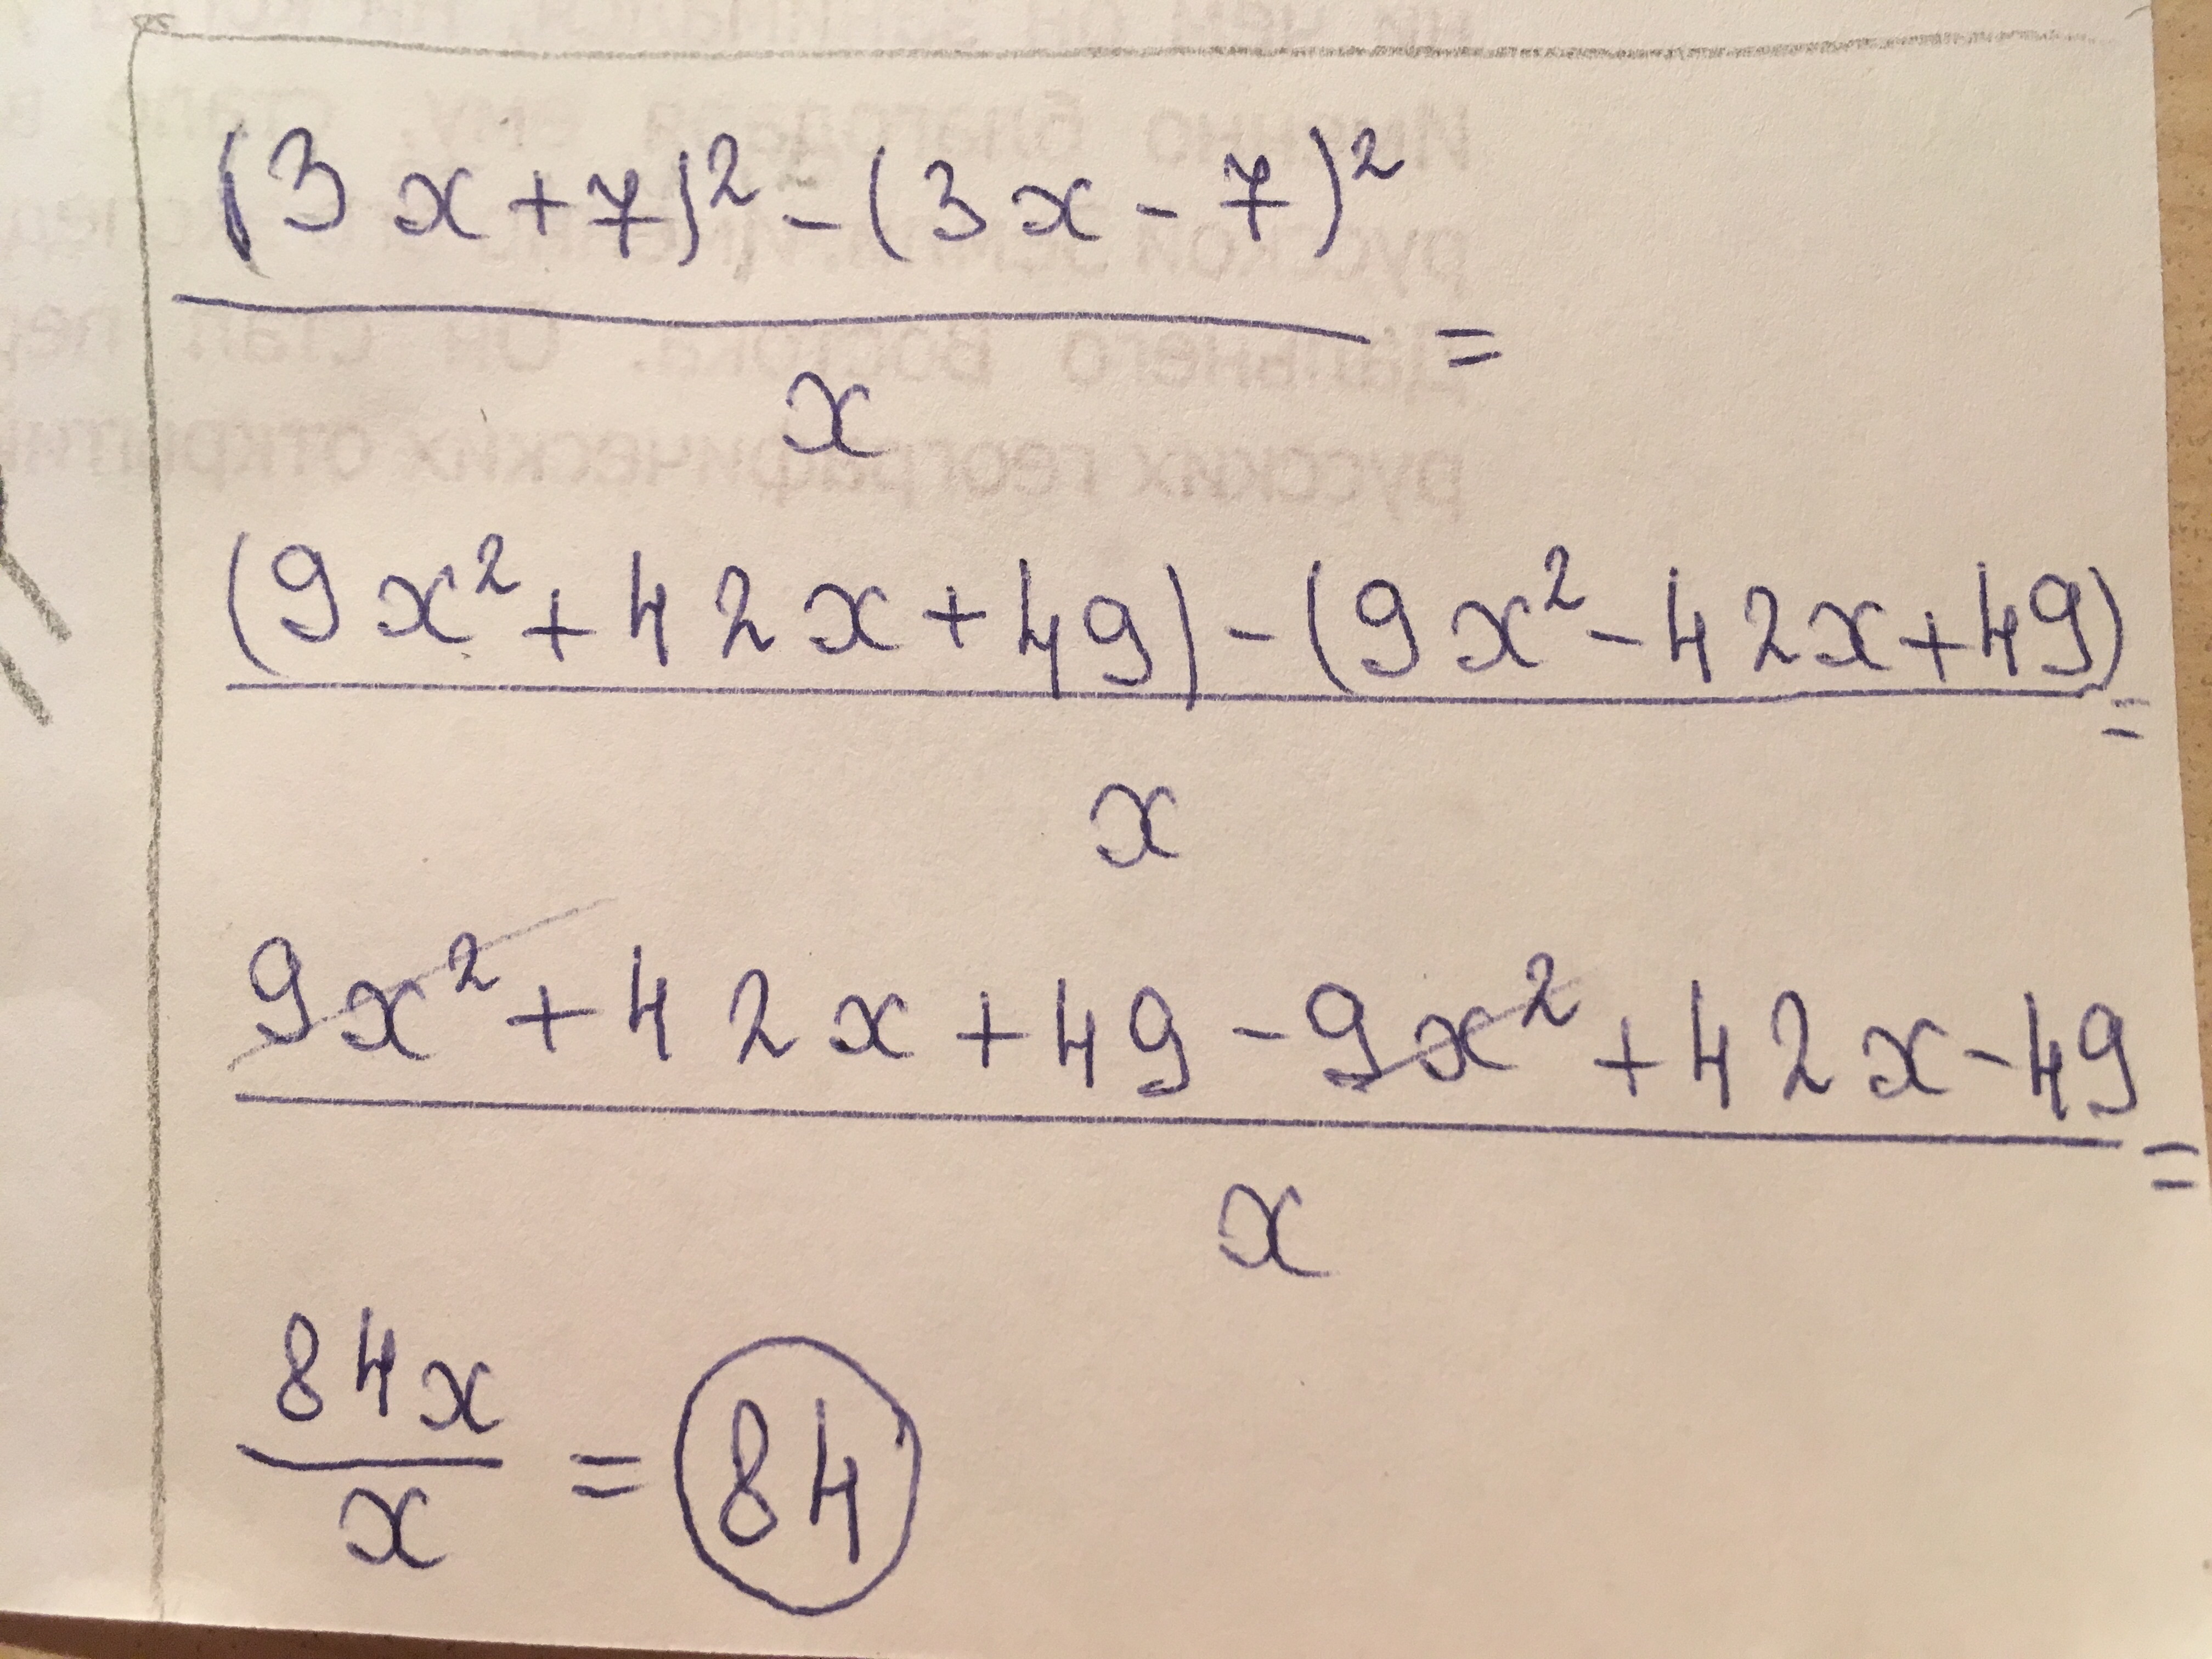 (3x+7)²-(3x-7)²
x
=
(9x²+42x+49)-(9x²-42x+49)
x
=
9x²+42x+49-9x²+42x-49
x
=
84x
x
= 84